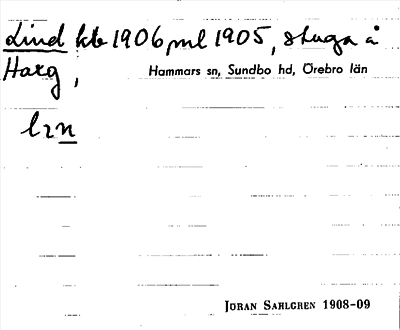 Lind kb 1906, ml 1905, stuga å
Harg,
Hammars sn, Sundbo hd, Örebro län
lzn
JÖRAN SAHLGREN 1908-09